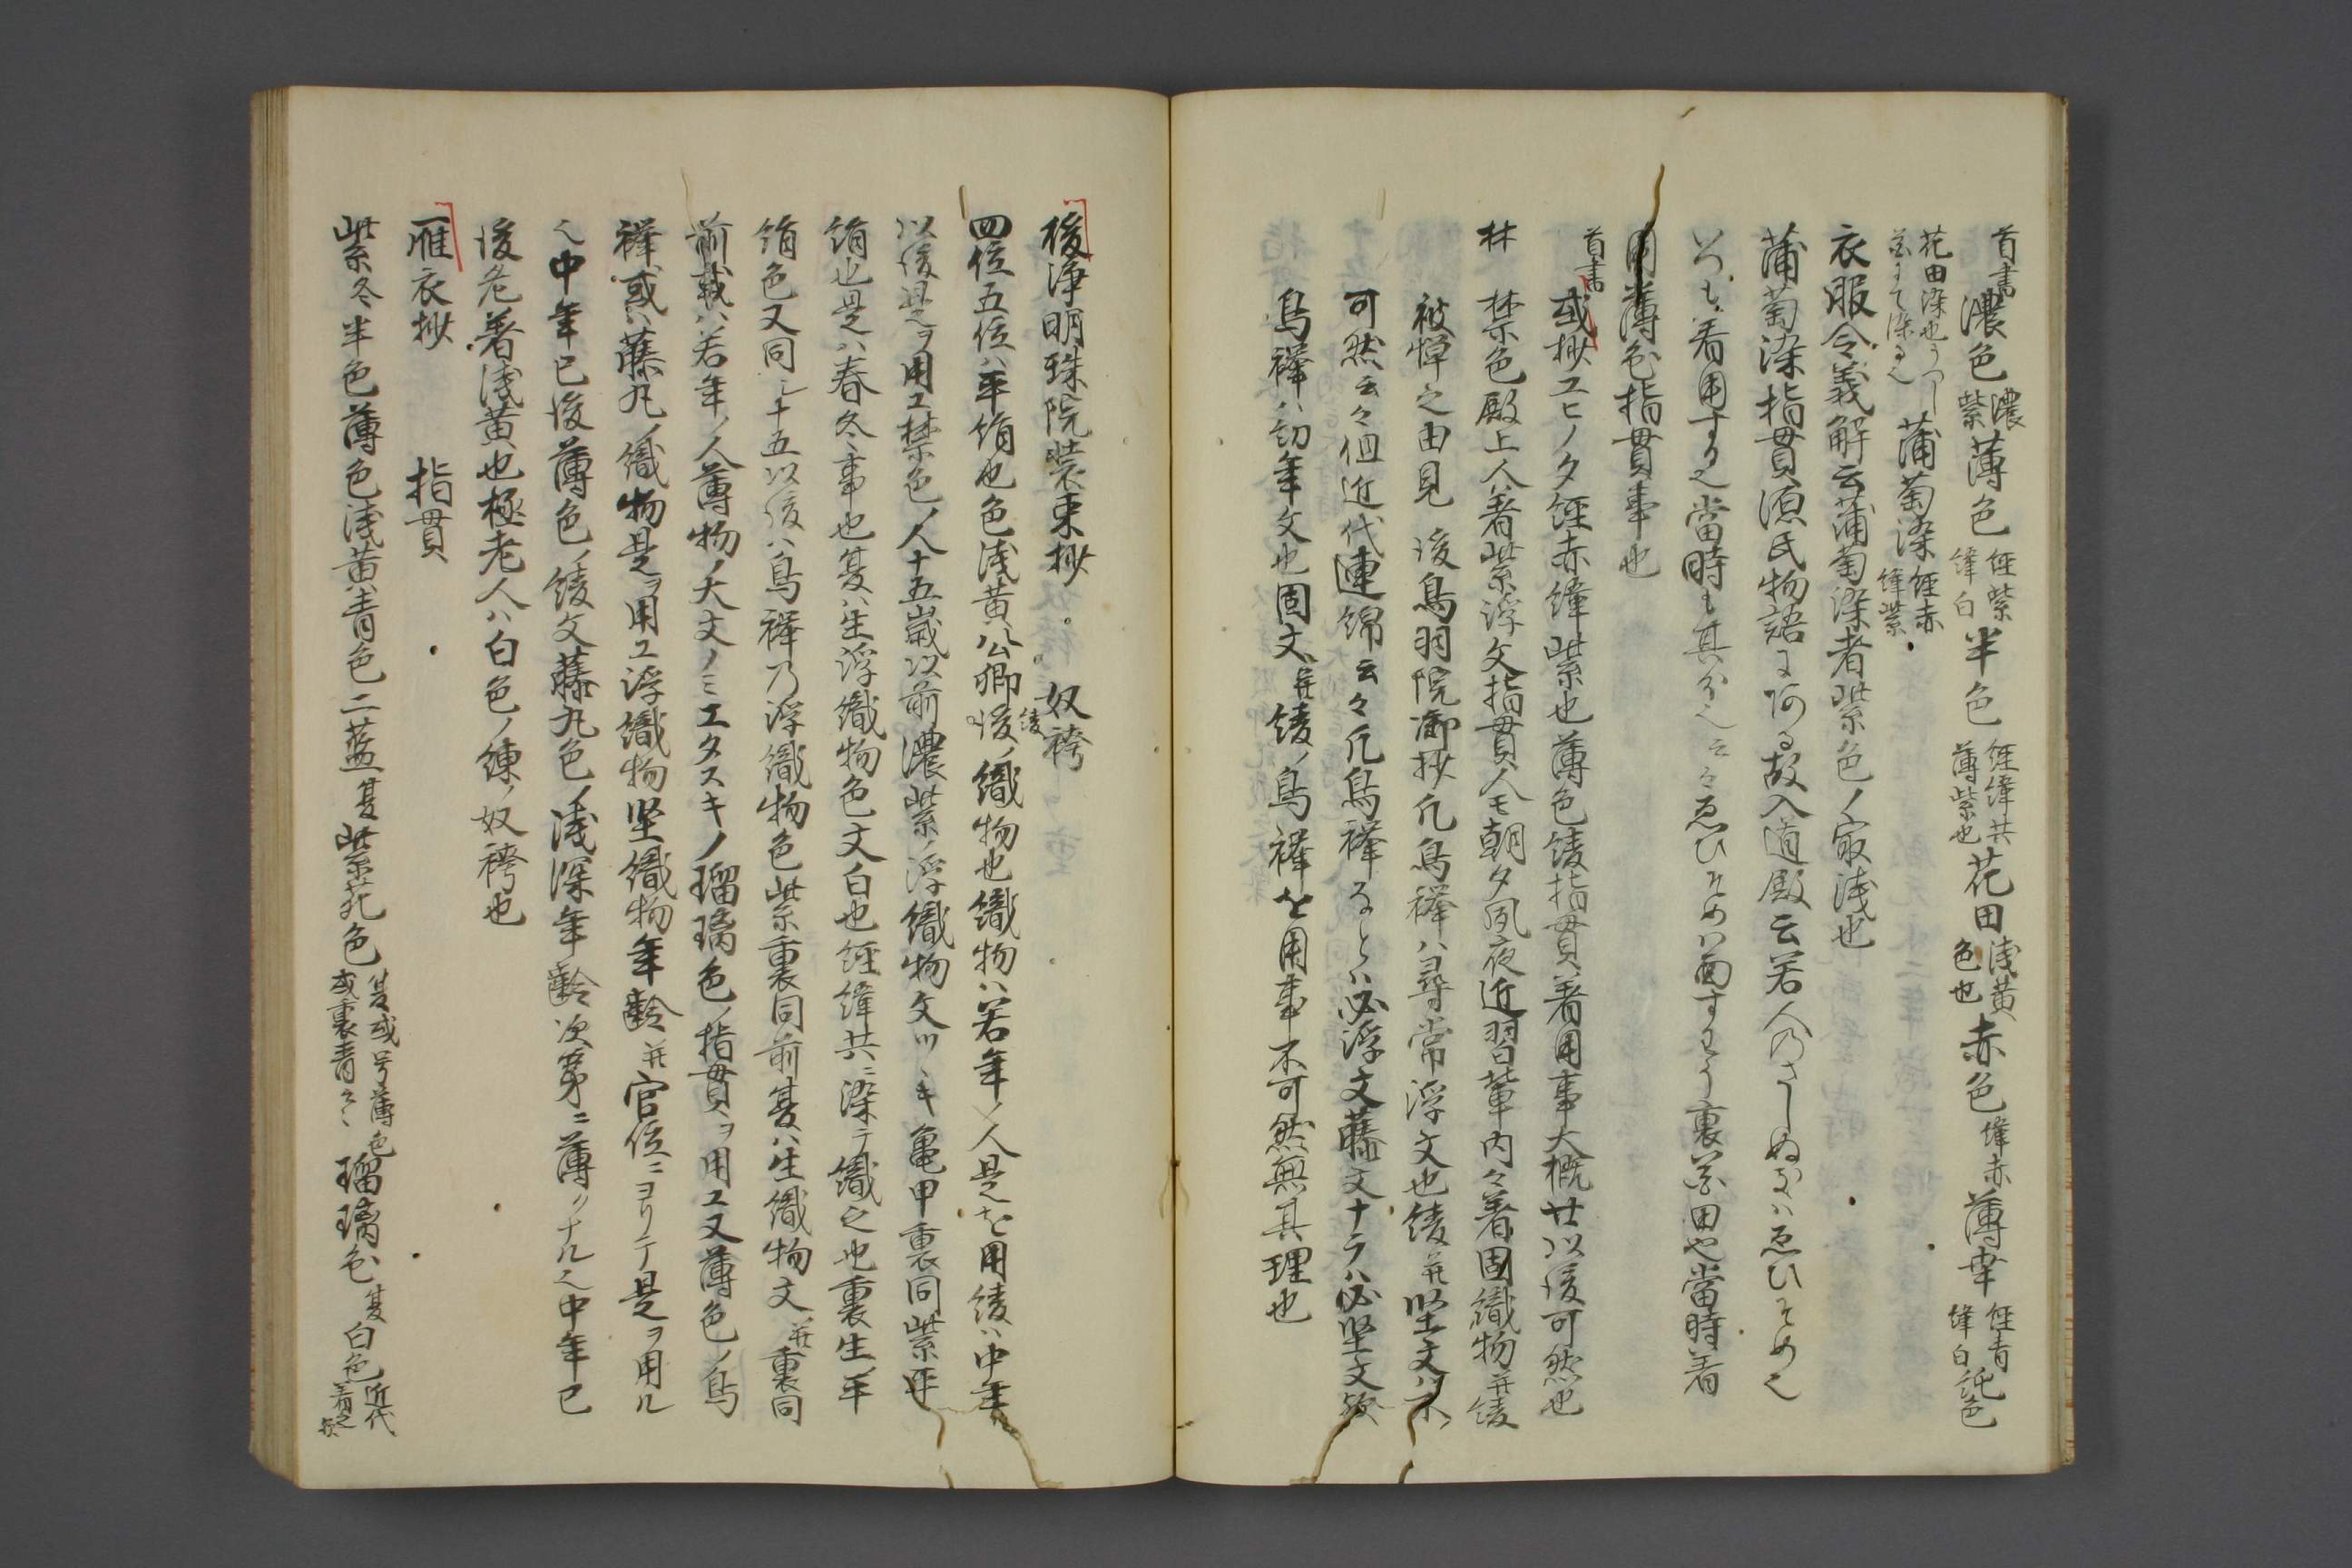 首書 濃色 濃紫 薄色 経紫緯白 半色 経緯共薄紫也 花田 浅黄色也 赤色 緯赤 薄幸 経青緯白 純色
花田染也 蒲萄染 経赤緯紫
衣服令義解云蒲萄染者紫色ノ最浅也
蒲萄染指貫源氏物語に 故入道殿云若人のさしぬきハゑひそめ也
いつも着用する也當時も其分也云々ゑひそめハ面すわう裏花田也當時着
用薄色指貫事也
首書 或抄エヒノタ経赤緯紫也薄色綾指貫着用事大概廿以後可然也
林 禁色殿上人ハ着紫浮文指貫人モ朝夕夙夜近習輩内々着固織物并綾
被憚之由見 後鳥羽院御抄凡鳥襷ハ尋常浮文也綾并堅文ハ不
可然云々但近代連綿云々凡鳥襷なとハ必浮文藤文ナラハ必堅文歟
鳥襷ハ幼年文也固文并綾ノ鳥襷を用事不可然無其理也
後浄明珠院装束抄 奴袴
四位五位ハ平絹也色浅黄公卿後ノ綾織物也織物ハ若年ノ人是を用綾ハ中年
以後是ヲ用エ禁色ノ人十五歳以前濃紫ノ浮織物文ツヽキ亀甲裏同紫平
絹也是ハ春冬事也夏ハ生浮織物色文白也経緯共ニ染テ織之也裏生平
絹色又同シ十五以後ハ鳥襷乃浮織物色紫裏同前夏ハ生織物文并裏同
前或ハ若年ノ人薄物ノ大文ノミエタスキノ瑠璃色ノ指貫ヲ用エ又薄色ノ鳥
襷或ハ藤丸ノ織物是ヲ用エ浮織物堅織物年齢并官位ニヨリテ是ヲ用ル
也中年已後薄色ノ綾文藤丸色ノ浅深年齢次第ニ薄クナル也中年已
後老着浅黄也極老人ハ白色ノ練ノ奴袴也
雁衣抄 指貫
紫冬半色薄色浅黄青色二藍夏紫苑色 夏或号薄色或裏青云々 瑠璃色 夏 白色 近代着之歟